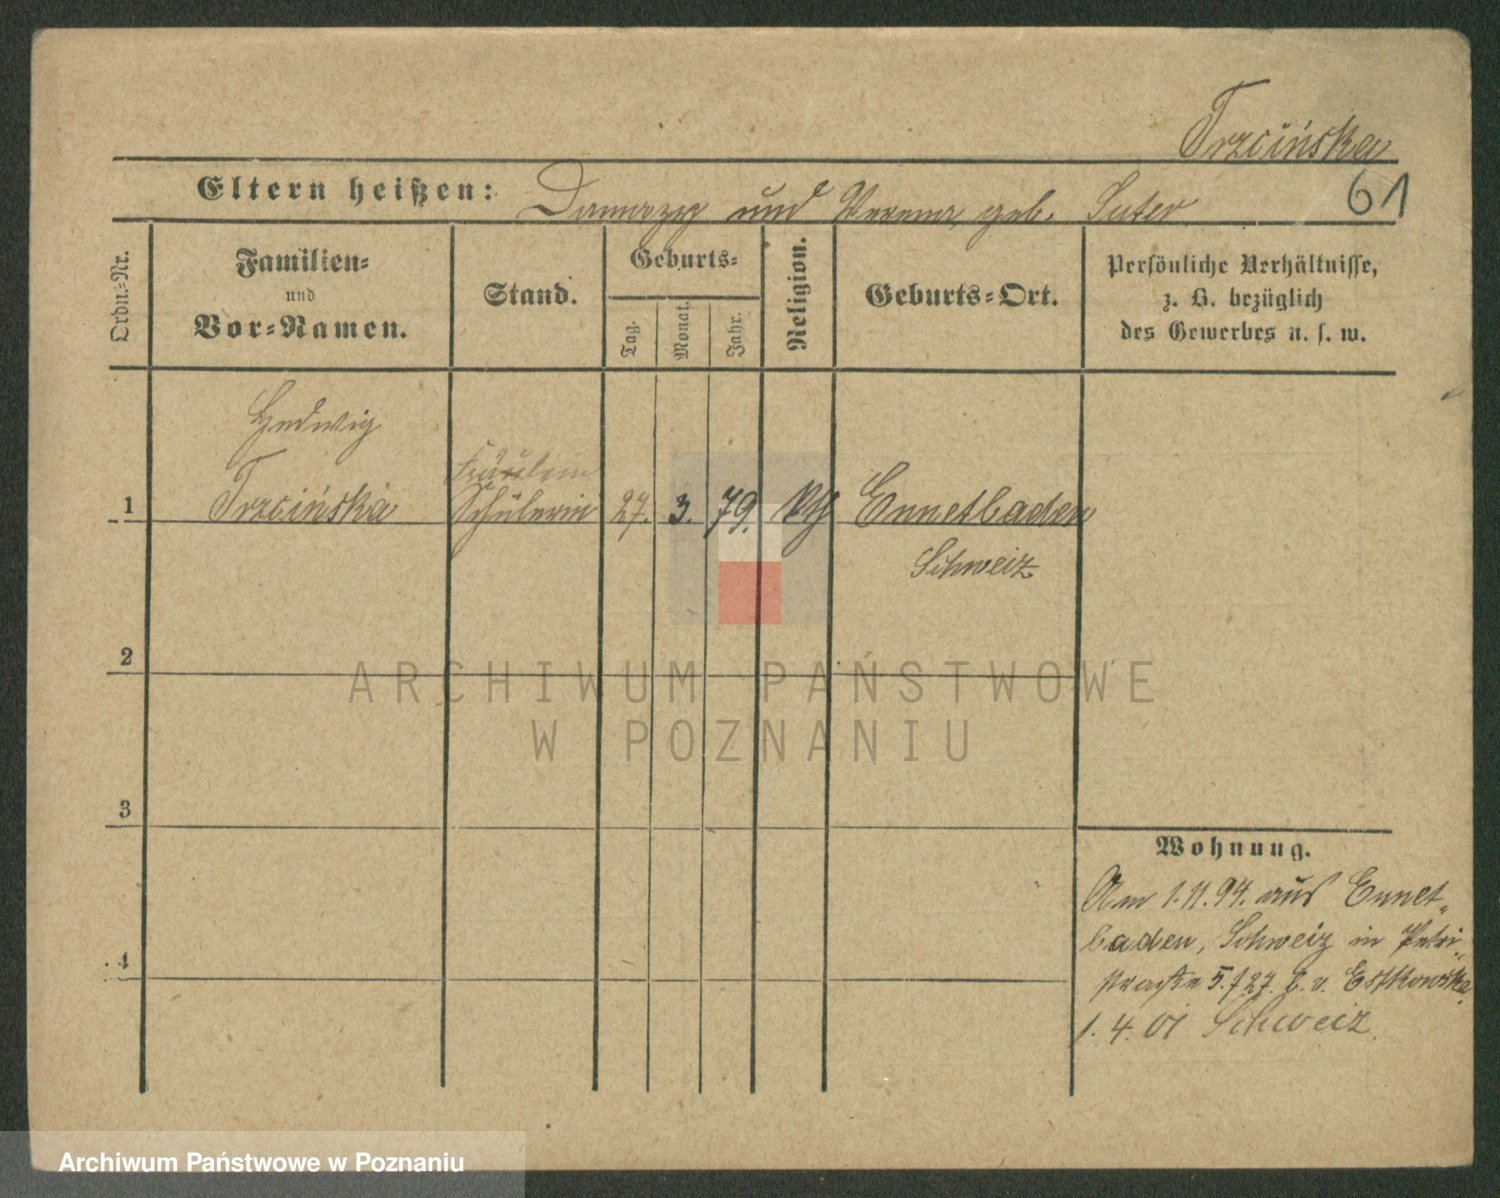 Trzcińska
Eltern heißen: Damazy und Verena geb. Suter
61
Ordn.-Nr.
Familien-
und
Vor-Namen.
Stand.
Geburts-
Tag.
Monat.
Jahr.
Religion.
Geburts-Ort.
Persönliche Verhältnisse,
z. B. bezüglich
des Gewerbes u. s. w.
Hedwig
Fräulein
1 Trzcińska Schülerin 27. 3. 79. kth Ennetbaden
Schweiz
2
3
4
Wohnung.
Am 1.11.94. aus Ennet-
baden, Schweiz in Petri-
straße 5. f 27. b. v. Estkowska
1.4.01 Schweiz.
ARCHIWUM PAŃSTWOWE
W POZNANIU
Archiwum Państwowe w Poznaniu